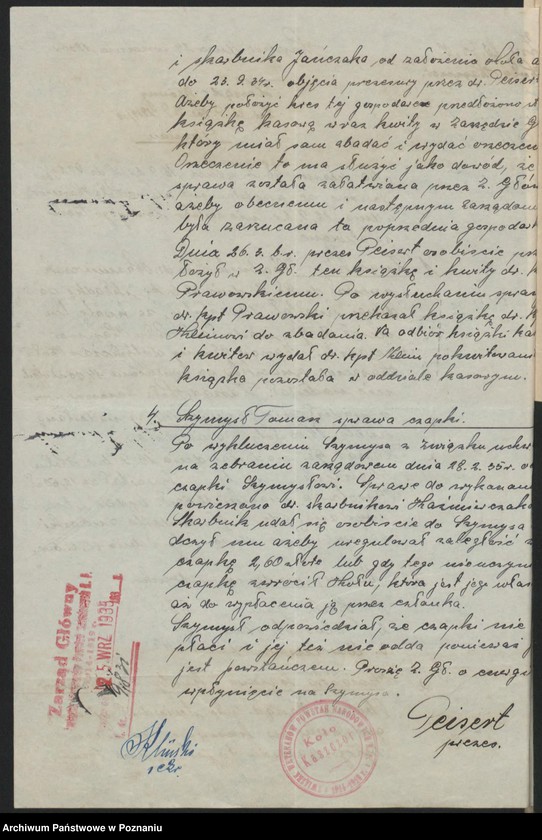 i skarbnika Jańczaka od założenia około
do 23.9.34r. objęcia prezesury przez dr. Peisert
Ażeby położyć kres tej gospodarce przedłożono
książkę kasową wraz kwity w Zarządzie G
który miał sam zbadać i wydać orzeczen
Orzeczenie to ma służyć jako dowód, że
sprawa została załatwiona przez Z. Głów
ażeby obecnemu i następnym zarządom
była zarzucana ta poprzednia gospodar
Dnia 26.3. b.r. prezes Peisert osobiście prz
łożył w Z. Gł. ten książkę i kwity dr. k
Prawowskiemu. Po wysłuchaniu spraw
dr. kpt Prawowski przekazał książkę dr. k
Klimowi do zbadania. Na odbiór książki ka
i kwitów wydał dr. kpt Klim pokwitowani
książka pozostała w oddziale kasowym.
4. Szymyś Tomasz sprawa czapki.
Po wykluczeniu Szymysa z Związku uchw
na zebraniu zarządowem dnia 28.2.35r. o
czapki Szymysowi. Sprawę do wykonan
powierzono dr. skarbnikowi Kaźmierczak
Skarbnik udał się osobiście do Szymysa
ażeby uregulował zaległość z
czapkę 2,60 złote lub gdy tego nieuczyn
czapkę zwrócił Kołu, która jest jego włas
aż do wypłacenia ją przez członka.
Szymyś odpowiedział, że czapki nie
płaci i jej też nie odda ponieważ
jest powstańcem. Proszę Z. Gł. o energ
wpłynięcie na Szymysa.
Peisert
prezes.
Zarząd Główny
5 WRZ 1935
sekr.
Koło
KOŚCIAN
Archiwum Państwowe w Poznaniu